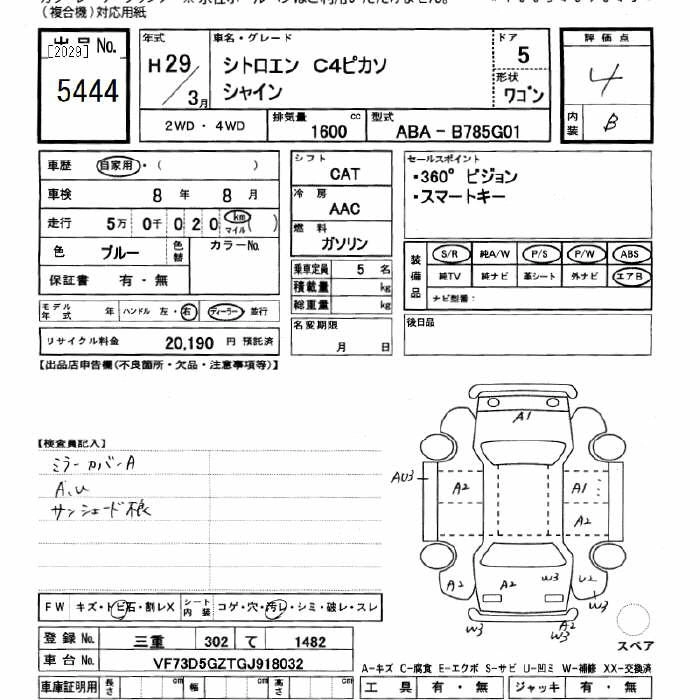 (複合機)対応用紙
出品No.
[2029]
5444
年式
H29/3月
車名・グレード
シトロエン C4ピカソ
シャイン
ドア
5
形状
ワゴン
評価点
4
内装
B
2WD・4WD
排気量
1600 cc
型式
ABA-B785G01
車歴 自家用・( )
車検 8年 8月
走行 5万 0千 0 2 0 km マイル ( )
色 ブルー 色替 カラーNo.
保証書 有・無
モデル年式 年 ハンドル 左・右 ディーラー 並行
リサイクル料金 20,190 円 預託済
シフト
CAT
冷房
AAC
燃料
ガソリン
乗車定員 5 名
積載量 kg
総重量 kg
名変期限
月 日
セールスポイント
・360° ビジョン
・スマートキー
装備品
S/R 純A/W P/S P/W ABS
純TV 純ナビ 革シート 外ナビ エアB
ナビ型番:
後日品
【出品店申告欄(不良箇所・欠品・注意事項等)】
【検査員記入】
ミラーカバーA
A、U
サンシェード
A1
AU3
A2
A1
A2
A2
A2
W3
U2
W3
W3
A2
W3
スペア
FW キズ・トビ石・割レX シート内装 コゲ・穴・汚レ・シミ・破レ・スレ
登録No. 三重 302 て 1482
車台No. VF73D5GZTGJ918032
車庫証明用 長さ cm 幅 cm 高さ cm
A-キズ C-腐食 E-エクボ S-サビ U-凹ミ W-補修 XX-交換済
工具 有・無 ジャッキ 有・無